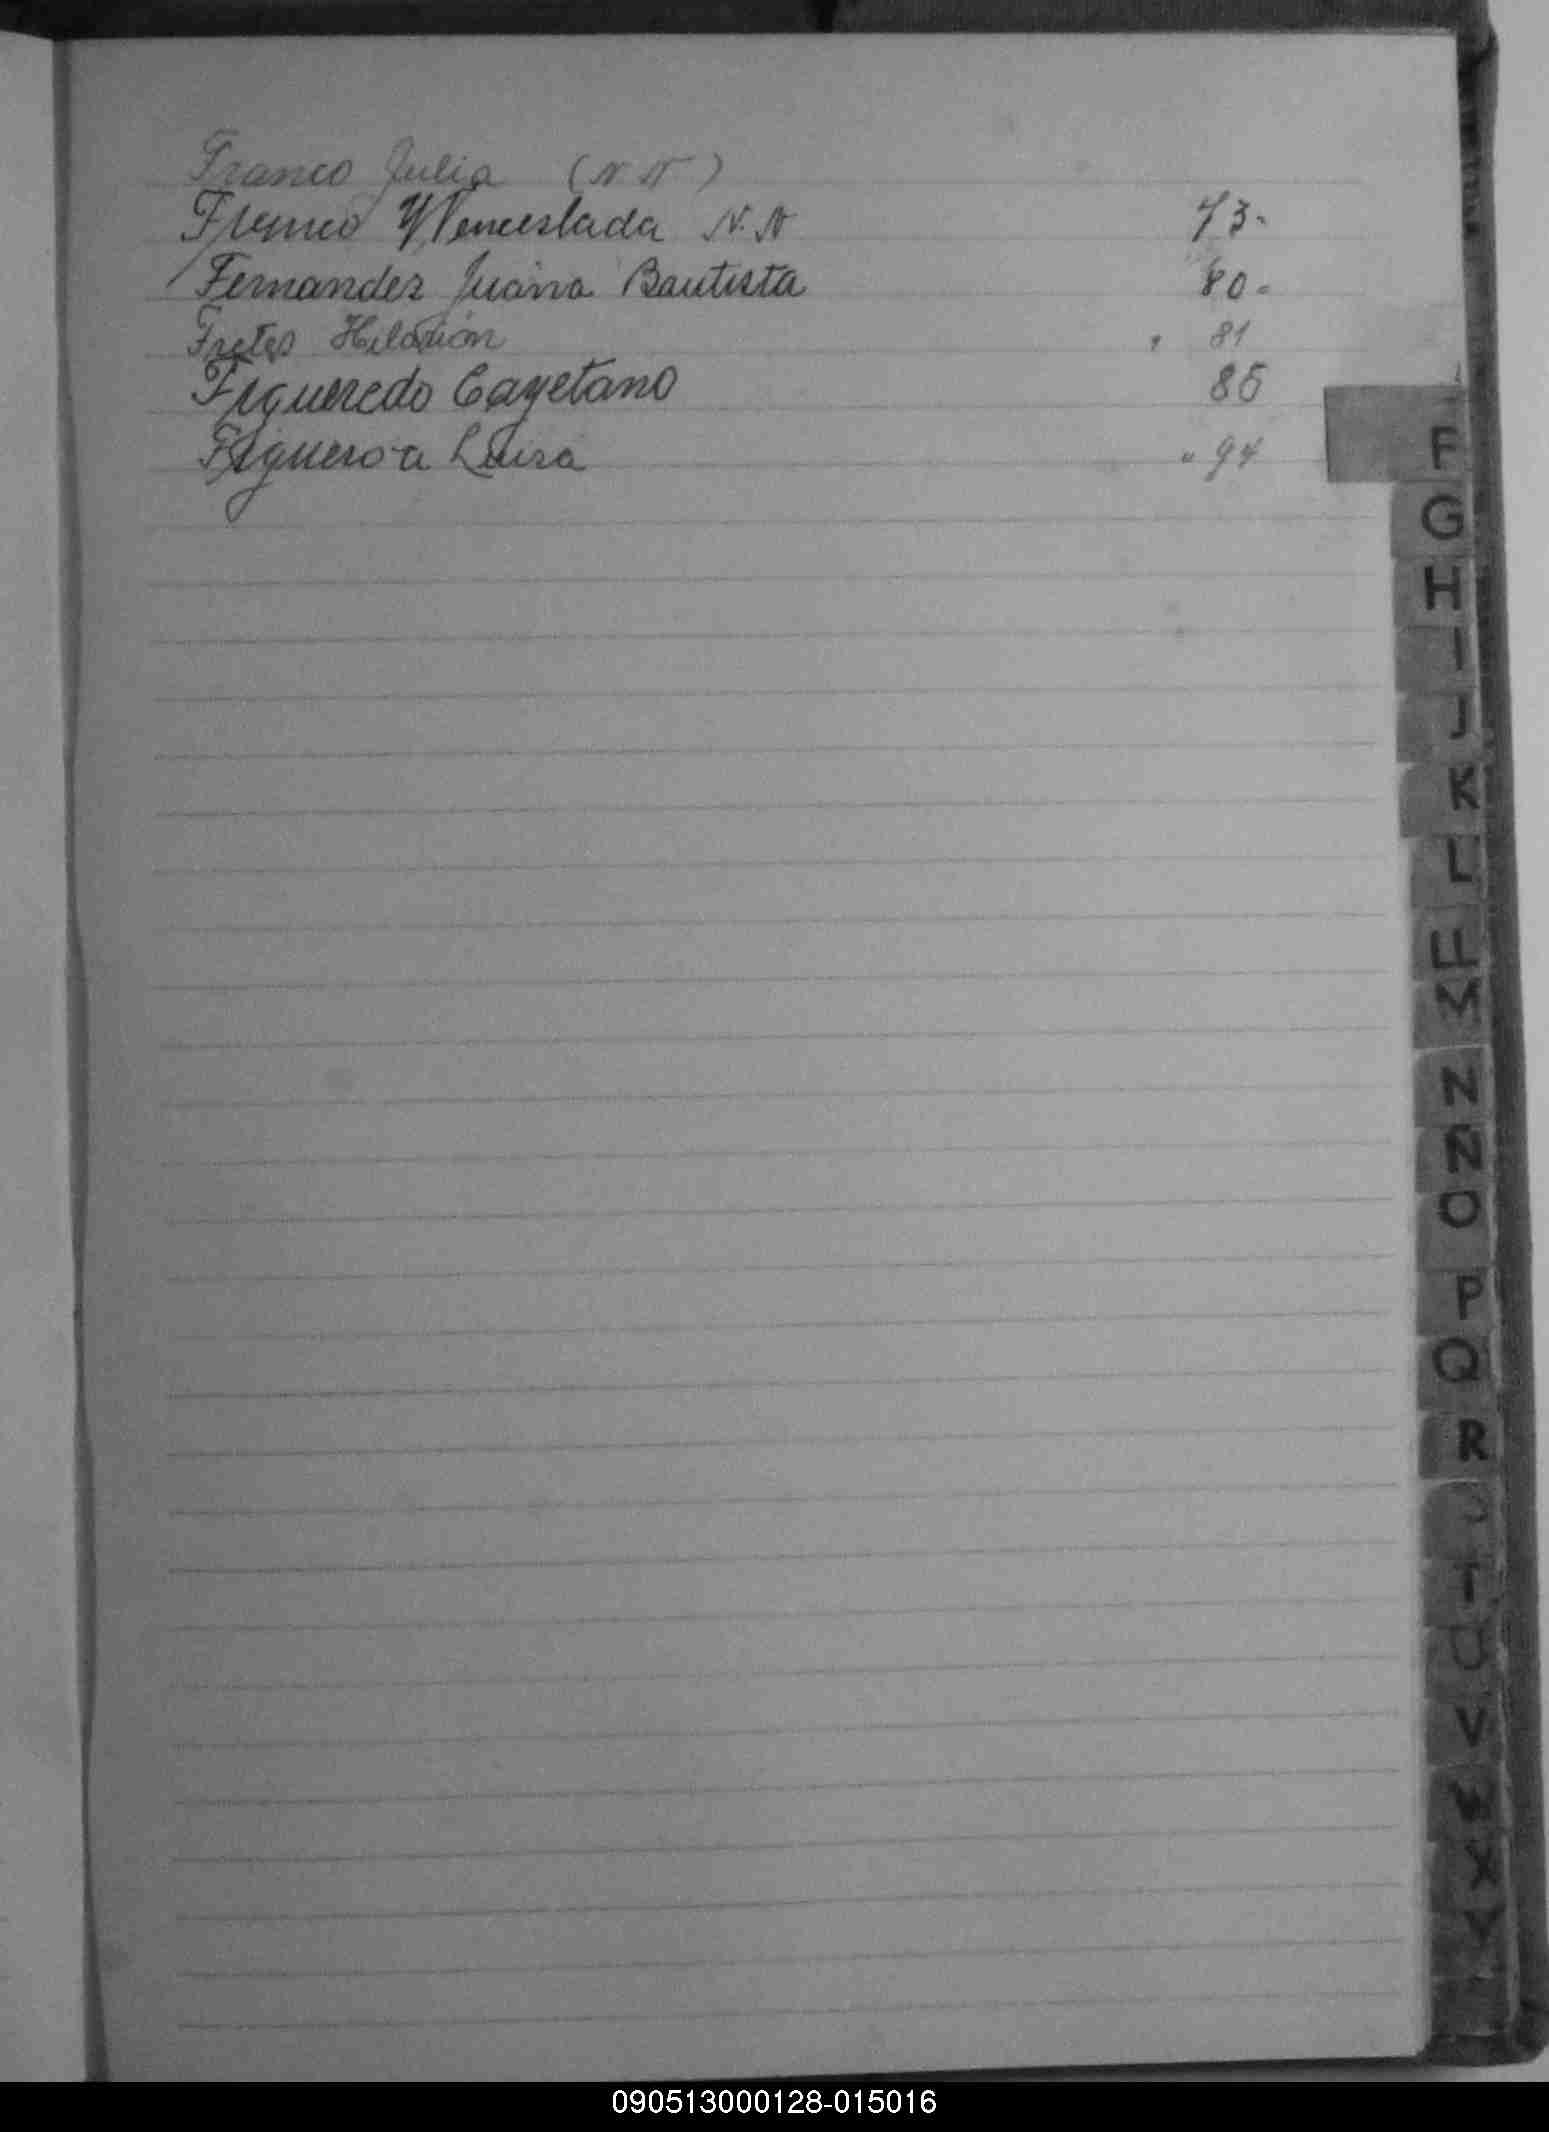 Franco Julia (N N)
Franco Wenceslada N. N 73-
Fernandez Juana Bautista 80-
Fretes Hilarión " 81
Figueredo Cayetano 85
Figueroa Luisa " 94
F
G
H
I
J
K
L
LL
M
N
Ñ
O
P
Q
R
S
T
U
V
W
X
Y
090513000128-015016